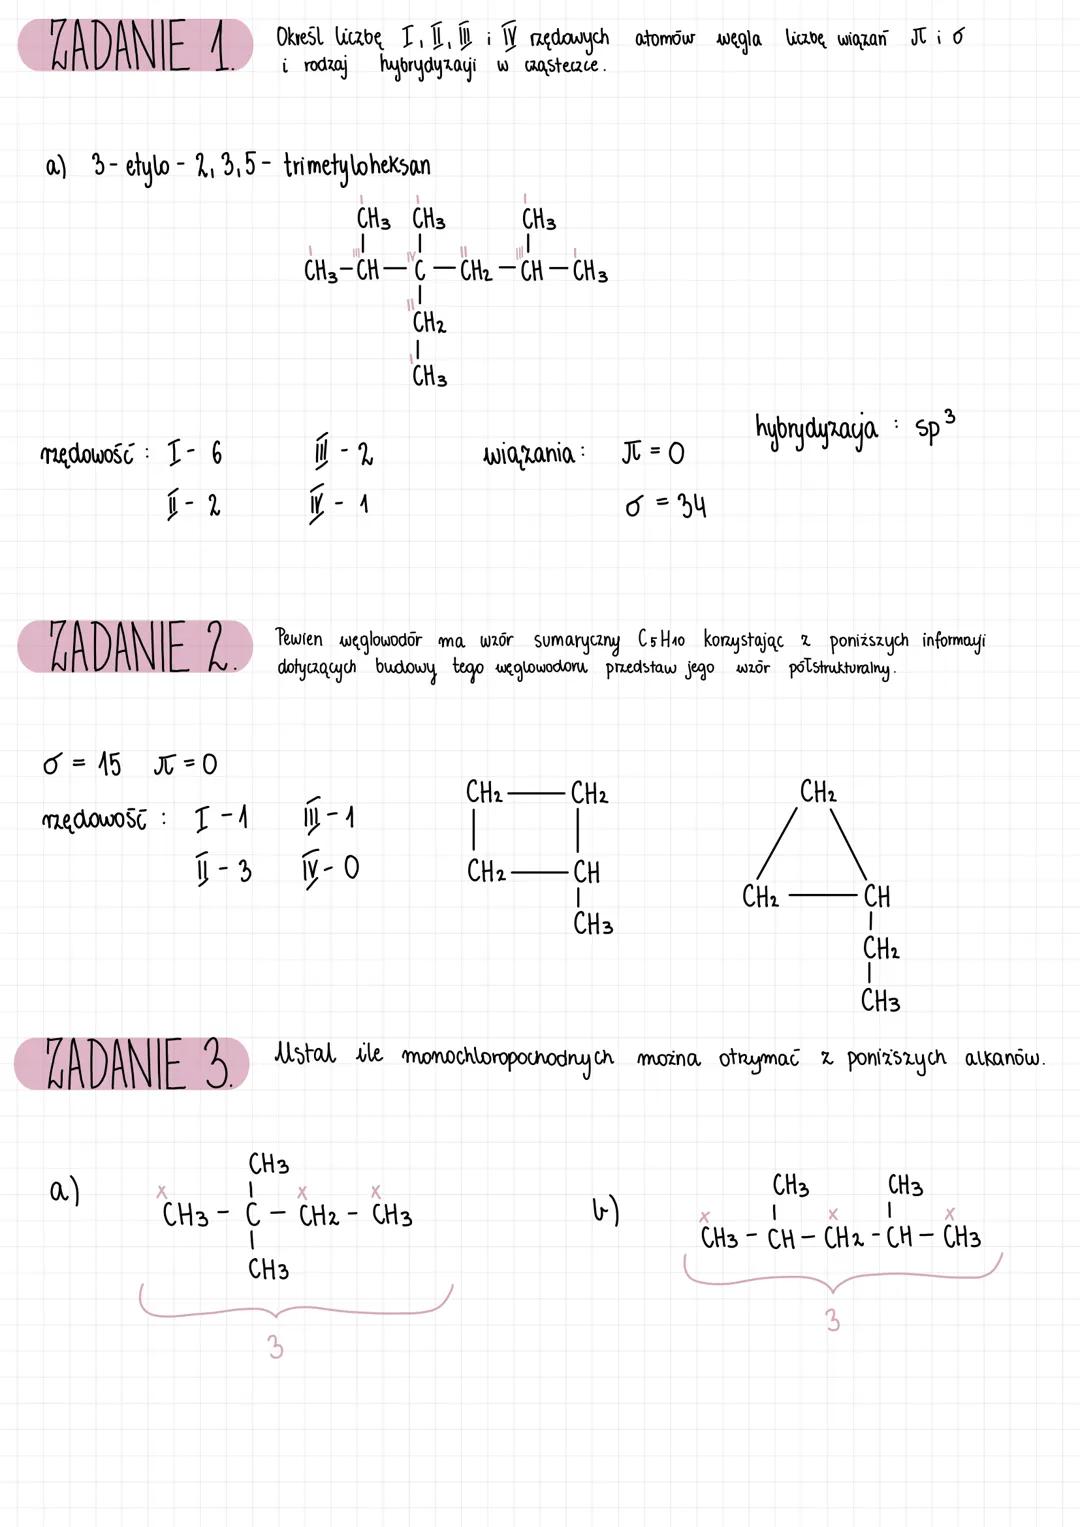 ZADANIE 1.
Określ liczbę I, II, III i IV rzędowych atomów węgla liczbę wiązań π i σ
i rodzaj hybrydyzacji w cząsteczce.
a) 3-etylo-2,3,5-trimetyloheksan
I I I
CH3 CH3 CH3
I III IV II III I
CH3-CH-C-CH2-CH-CH3
II
CH2
I
CH3
rzędowość: I - 6 III - 2 wiązania: π = 0 hybrydyzacja: sp³
II - 2 IV - 1 σ = 34
ZADANIE 2.
Pewien węglowodór ma wzór sumaryczny C5H10 korzystając z poniższych informacji
dotyczących budowy tego węglowodoru przedstaw jego wzór półstrukturalny.
σ = 15 π = 0
rzędowość: I - 1 III - 1
II - 3 IV - 0
CH2 - CH2
CH2 - CH
CH3
CH2
CH2 - CH
CH2
CH3
ZADANIE 3.
Ustal ile monochloropochodnych można otrzymać z poniższych alkanów.
a)
CH3
x x x
CH3 - C - CH2 - CH3
CH3
3
b)
CH3 CH3
x x x
CH3 - CH - CH2 - CH - CH3
3